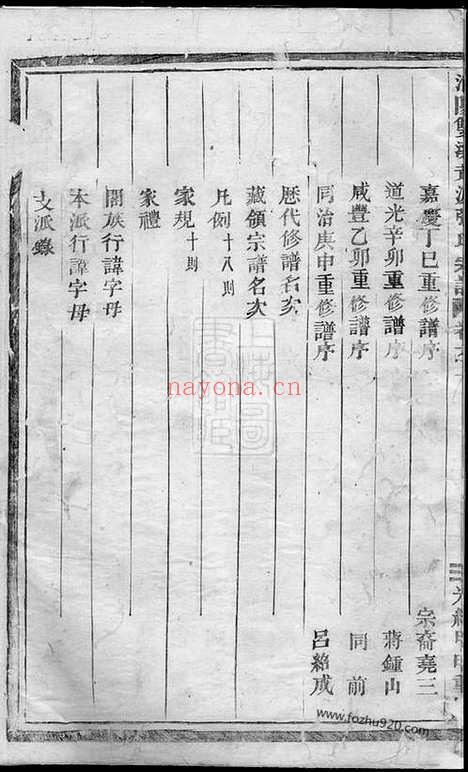 嘉慶丁巳重修譜序 宗裔堯三
道光辛卯重修譜序 蔣鍾山
咸豐乙卯重修譜序 同前
同治庚申重修譜序 呂紹成
歷代修譜名次
藏領宗譜名次
凡例十八則
家規十則
家禮
閤族行諱字母
本派行諱字母
支派錄
nayona.cn
www.fozhu920.com